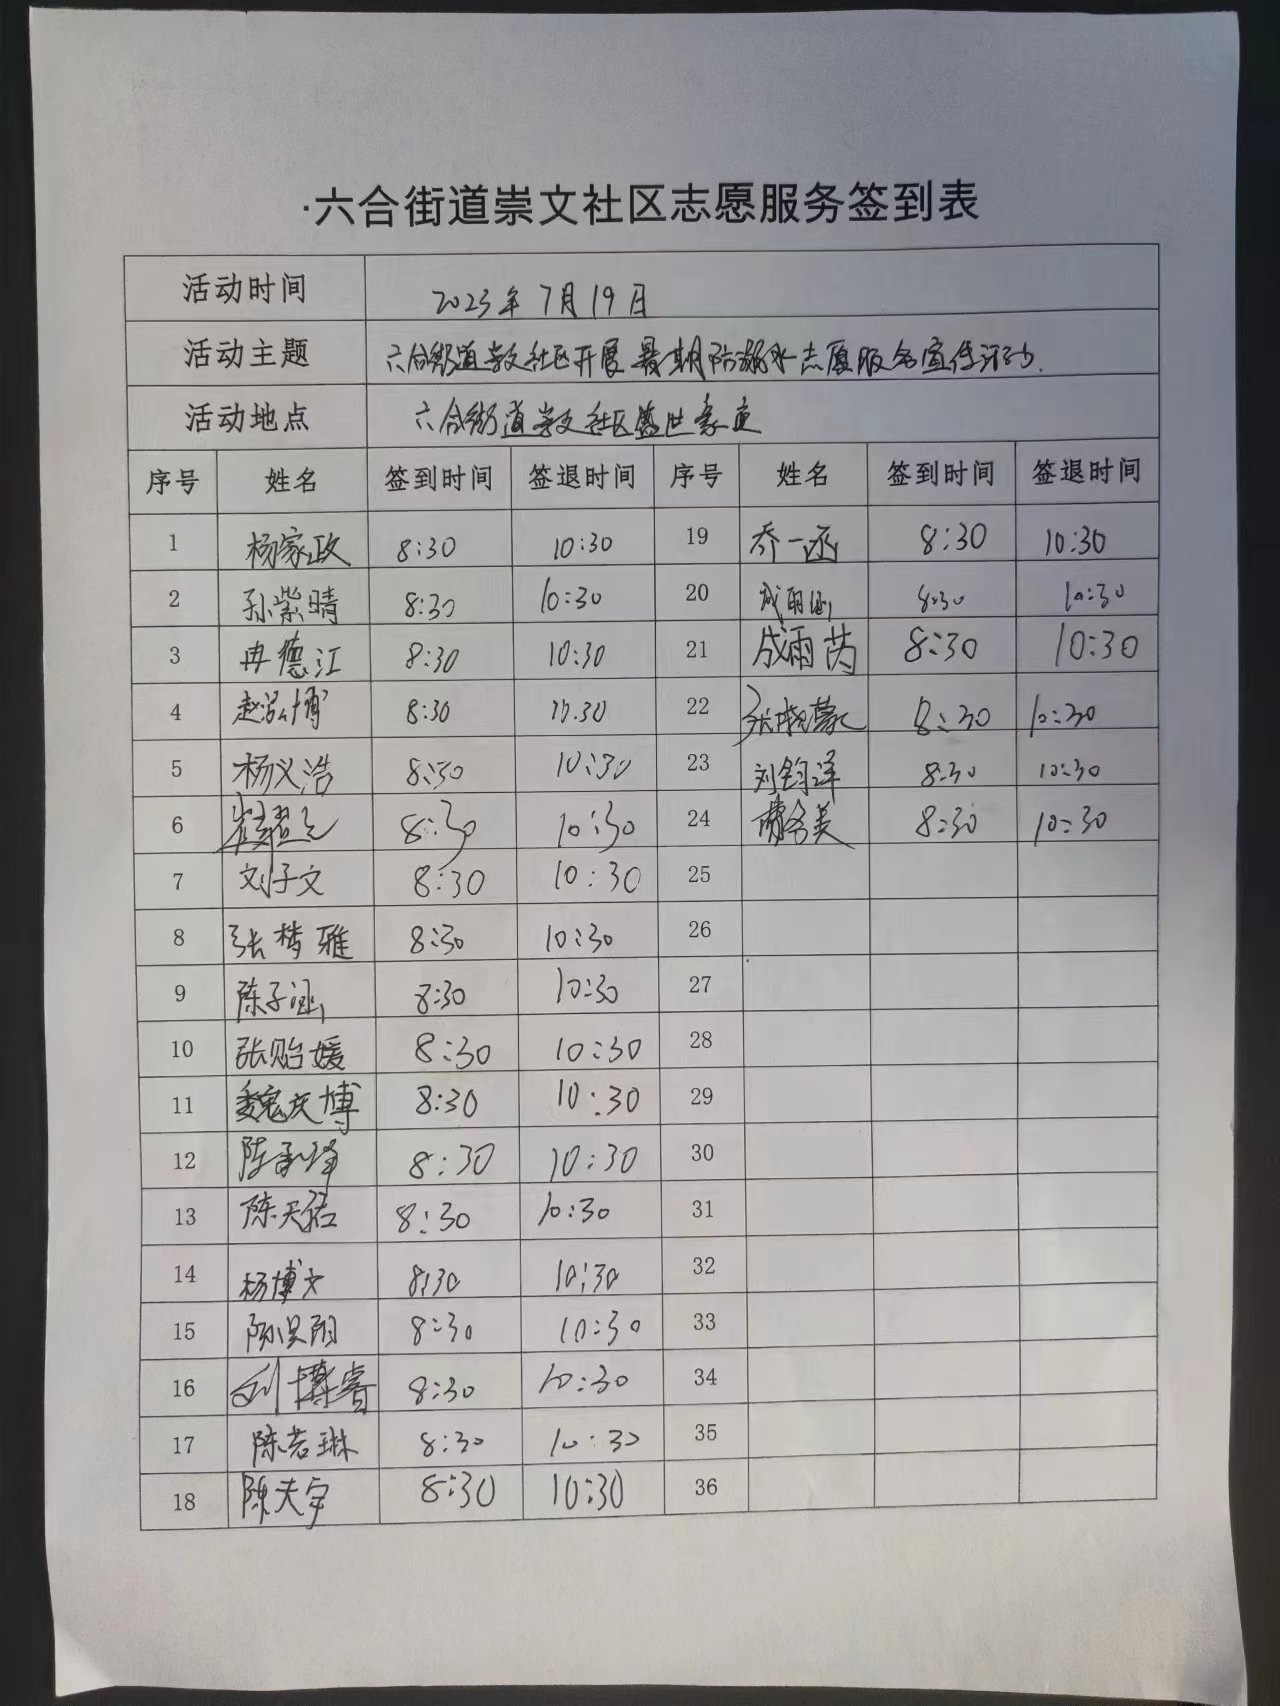 ·六合街道崇文社区志愿服务签到表
活动时间 2023年7月19日
活动主题 六合街道崇文社区开展暑期防溺水志愿服务宣传活动.
活动地点 六合街道崇文社区盛世豪庭
序号 姓名 签到时间 签退时间 序号 姓名 签到时间 签退时间
1 杨家政 8:30 10:30 19 乔一函 8:30 10:30
2 孙紫晴 8:30 10:30 20 8:30 10:30
3 冉德江 8:30 10:30 21 成雨芮 8:30 10:30
4 赵泓博 8:30 10:30 22 8:30 10:30
5 杨义浩 8:30 10:30 23 刘钧泽 8:30 10:30
6 8:30 10:30 24 8:30 10:30
7 刘子文 8:30 10:30 25
8 张梦雅 8:30 10:30 26
9 陈子涵 8:30 10:30 27
10 张贻媛 8:30 10:30 28
11 魏庆博 8:30 10:30 29
12 8:30 10:30 30
13 陈天佑 8:30 10:30 31
14 杨博文 8:30 10:30 32
15 8:30 10:30 33
16 刘博睿 8:30 10:30 34
17 陈若琳 8:30 10:30 35
18 陈夫宇 8:30 10:30 36